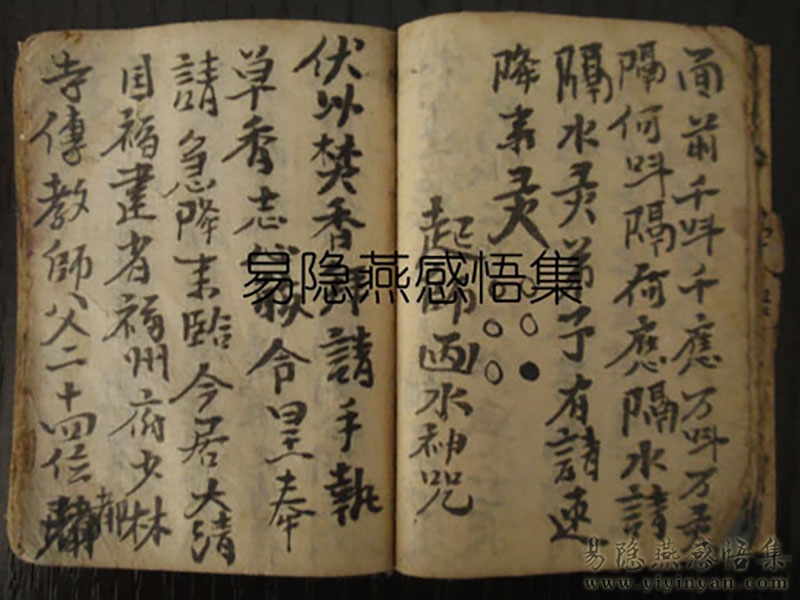 面前千叫千應万叫万灵
隔何叫隔何應隔水請
隔水灵弟子有請速
降来灵
起師画水神咒
伏以焚香拜請手執
草香志 令 奉
請急降来臨今居大清
国福建省福州府少林
寺傳教師父二十四位
易隐燕感悟集
易隐燕感悟集
www.yiyinyan.com